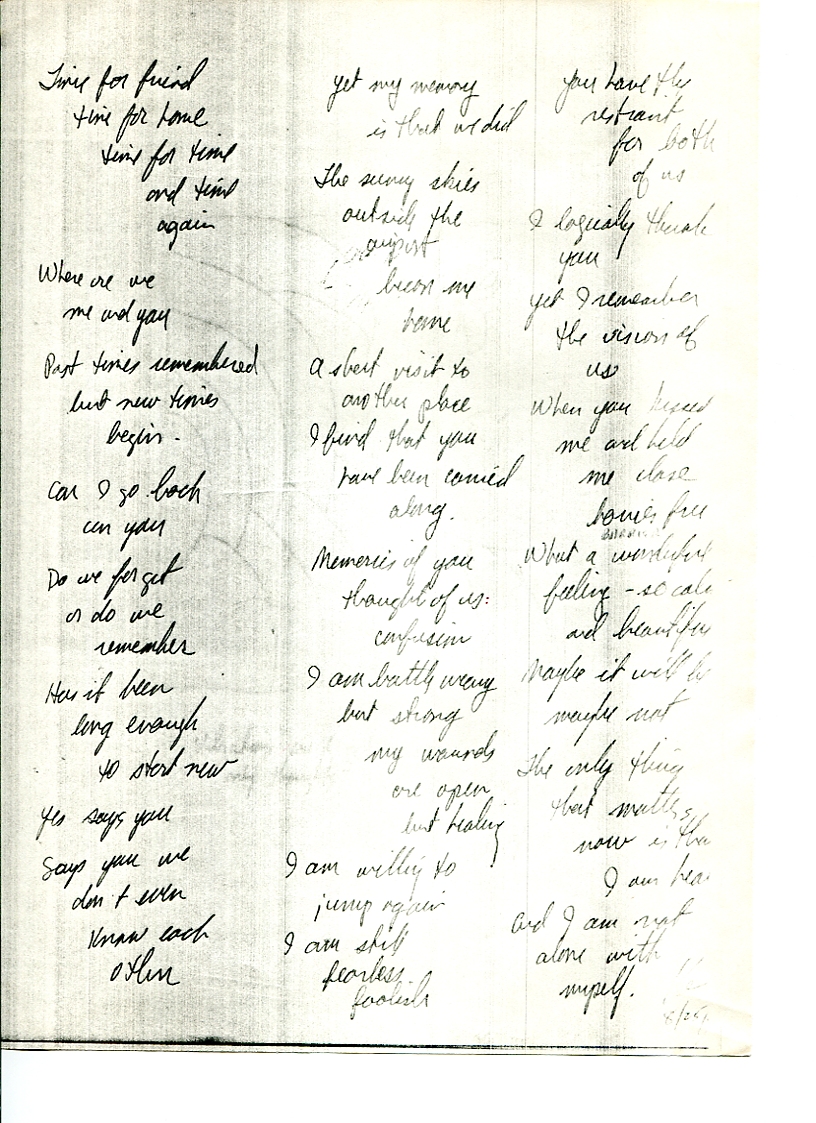 Time for friend
time for home
time for time
and time
again
Where are we
me and you
Past times remembered
but new times
begin.
Can I go back
can you
Do we forget
or do we
remember
Has it been
long enough
to start new
Yes says you
Says you we
don't even
know each
other
yet my memory
is that we did
The sunny skies
outside the
airport
beckon me
home
A short visit to
another place
I find that you
have been carried
along.
Memories of you
thought of us:
confusion
I am battle weary
but strong
my wounds
are open
but healing
I am willing to
jump again
I am still
fearless
foolish
You have the
restraint
for both
of us
I logically thank
you
yet I remember
the vision of
us
When you kissed
me and held
me close
free
What a wonderful
feeling - so calm
and beautiful
Maybe it will be
maybe not
The only thing
that matters
now is that
I am
and I am not
alone with
myself.